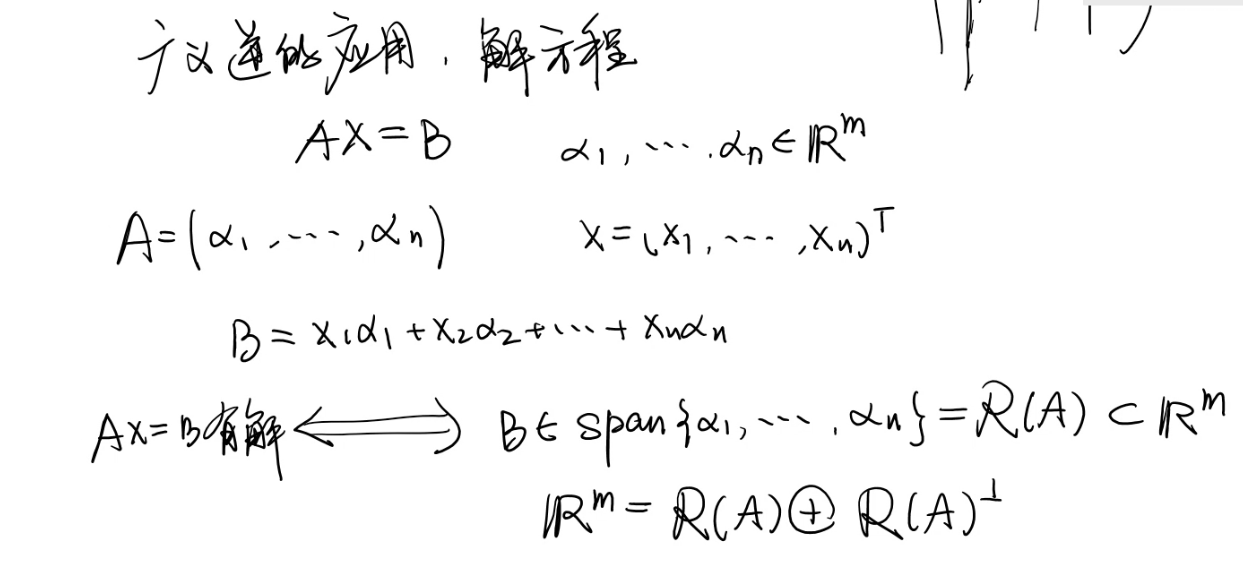 广义逆的应用. 解方程
AX=B α₁, ⋯, αₙ ∈ ℝᵐ
A=(α₁, ⋯, αₙ) X=(x₁, ⋯, xₙ)ᵀ
B = x₁α₁ + x₂α₂ + ⋯ + xₙαₙ
AX=B有解 ⟺ B∈ span{α₁, ⋯, αₙ} = R(A) ⊂ ℝᵐ
ℝᵐ = R(A) ⊕ R(A)^⊥